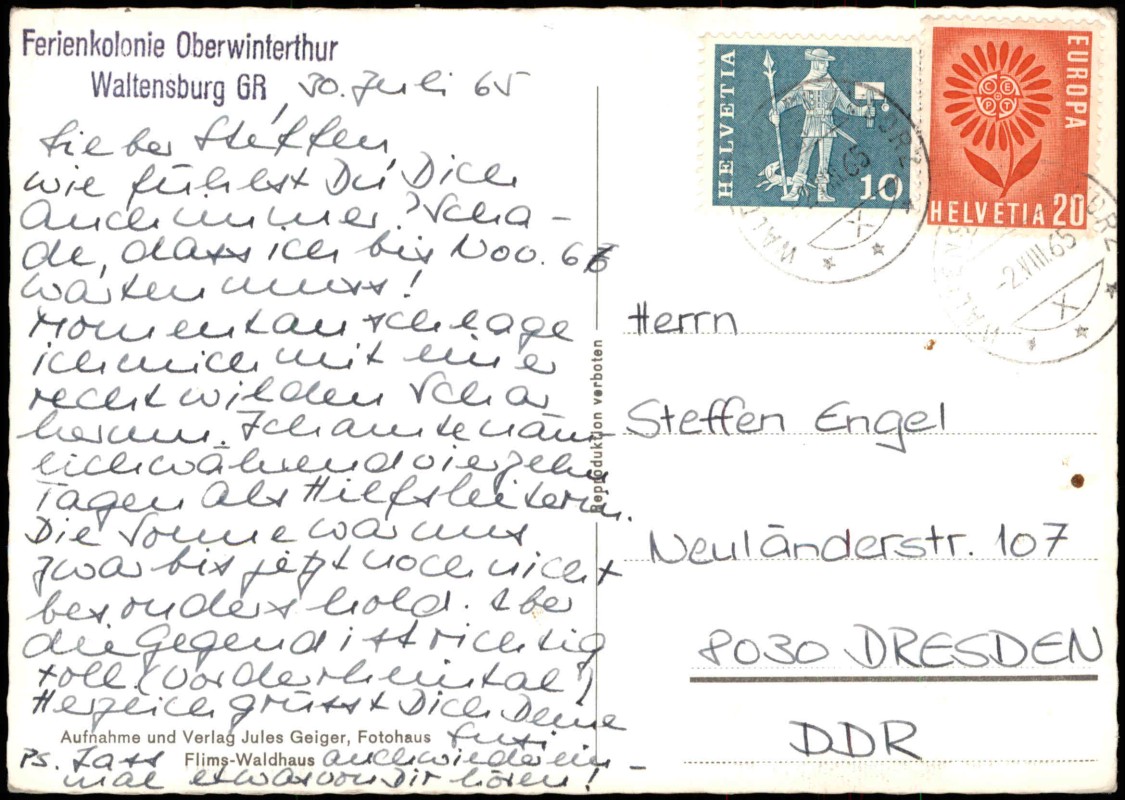 Ferienkolonie Oberwinterthur
Waltensburg GR, 30. Juli 65
Lieber Steffen,
wie fühlst Du Dich
auch immer? Scha-
de, dass ich bis Nov. 66
warten muss!
Momentan schlage
ich mich mit einer
recht wilden Schar
herum. Ich amte näm-
lich während vierzehn
Tagen als Hilfsleiterin.
Die Sonne war uns
zwar bis jetzt noch nicht
besonders hold. Aber
die Gegend ist richtig
toll (Vorderrheintal)
Herzlich grüsst Dich Deine
Susi
Ps. Lass auch wieder ein-
mal etwas von Dir hören!
Aufnahme und Verlag Jules Geiger, Fotohaus
Flims-Waldhaus
Reproduktion verboten
HELVETIA
10
EUROPA
CEPT
HELVETIA 20
-2.VIII.65
X
X
Herrn
Steffen Engel
Neuländerstr. 107
8030 DRESDEN
DDR